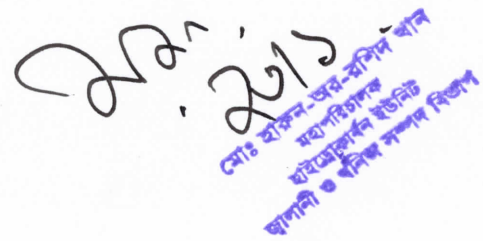 মোঃ হারুন-অর-রশিদ খান
মহাপরিচালক
হাইড্রোকার্বন ইউনিট
জ্বালানী ও খনিজ সম্পদ বিভাগ